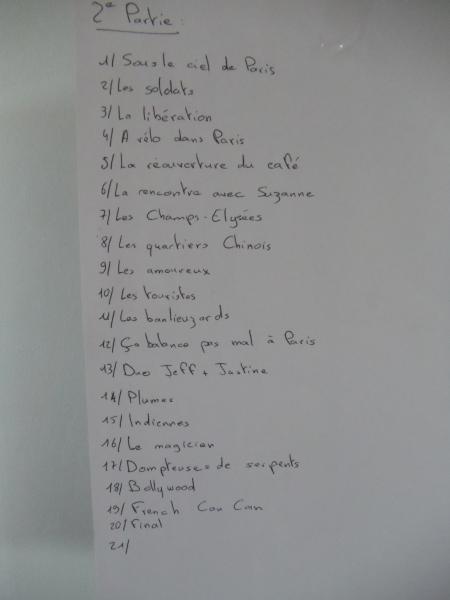 2e Partie :
1/ Sous le ciel de Paris
2/ Les soldats
3/ La libération
4/ A vélo dans Paris
5/ La réouverture du café
6/ La rencontre avec Suzanne
7/ Les Champs-Elysées
8/ Les quartiers Chinois
9/ Les amoureux
10/ Les touristes
11/ Les banlieuzards
12/ Ça balance pas mal à Paris
13/ Duo Jeff + Justine
14/ Plumes
15/ Indiennes
16/ Le magicien
17/ Dompteuses de serpents
18/ Bollywood
19/ French Can Can
20/ Final
21/